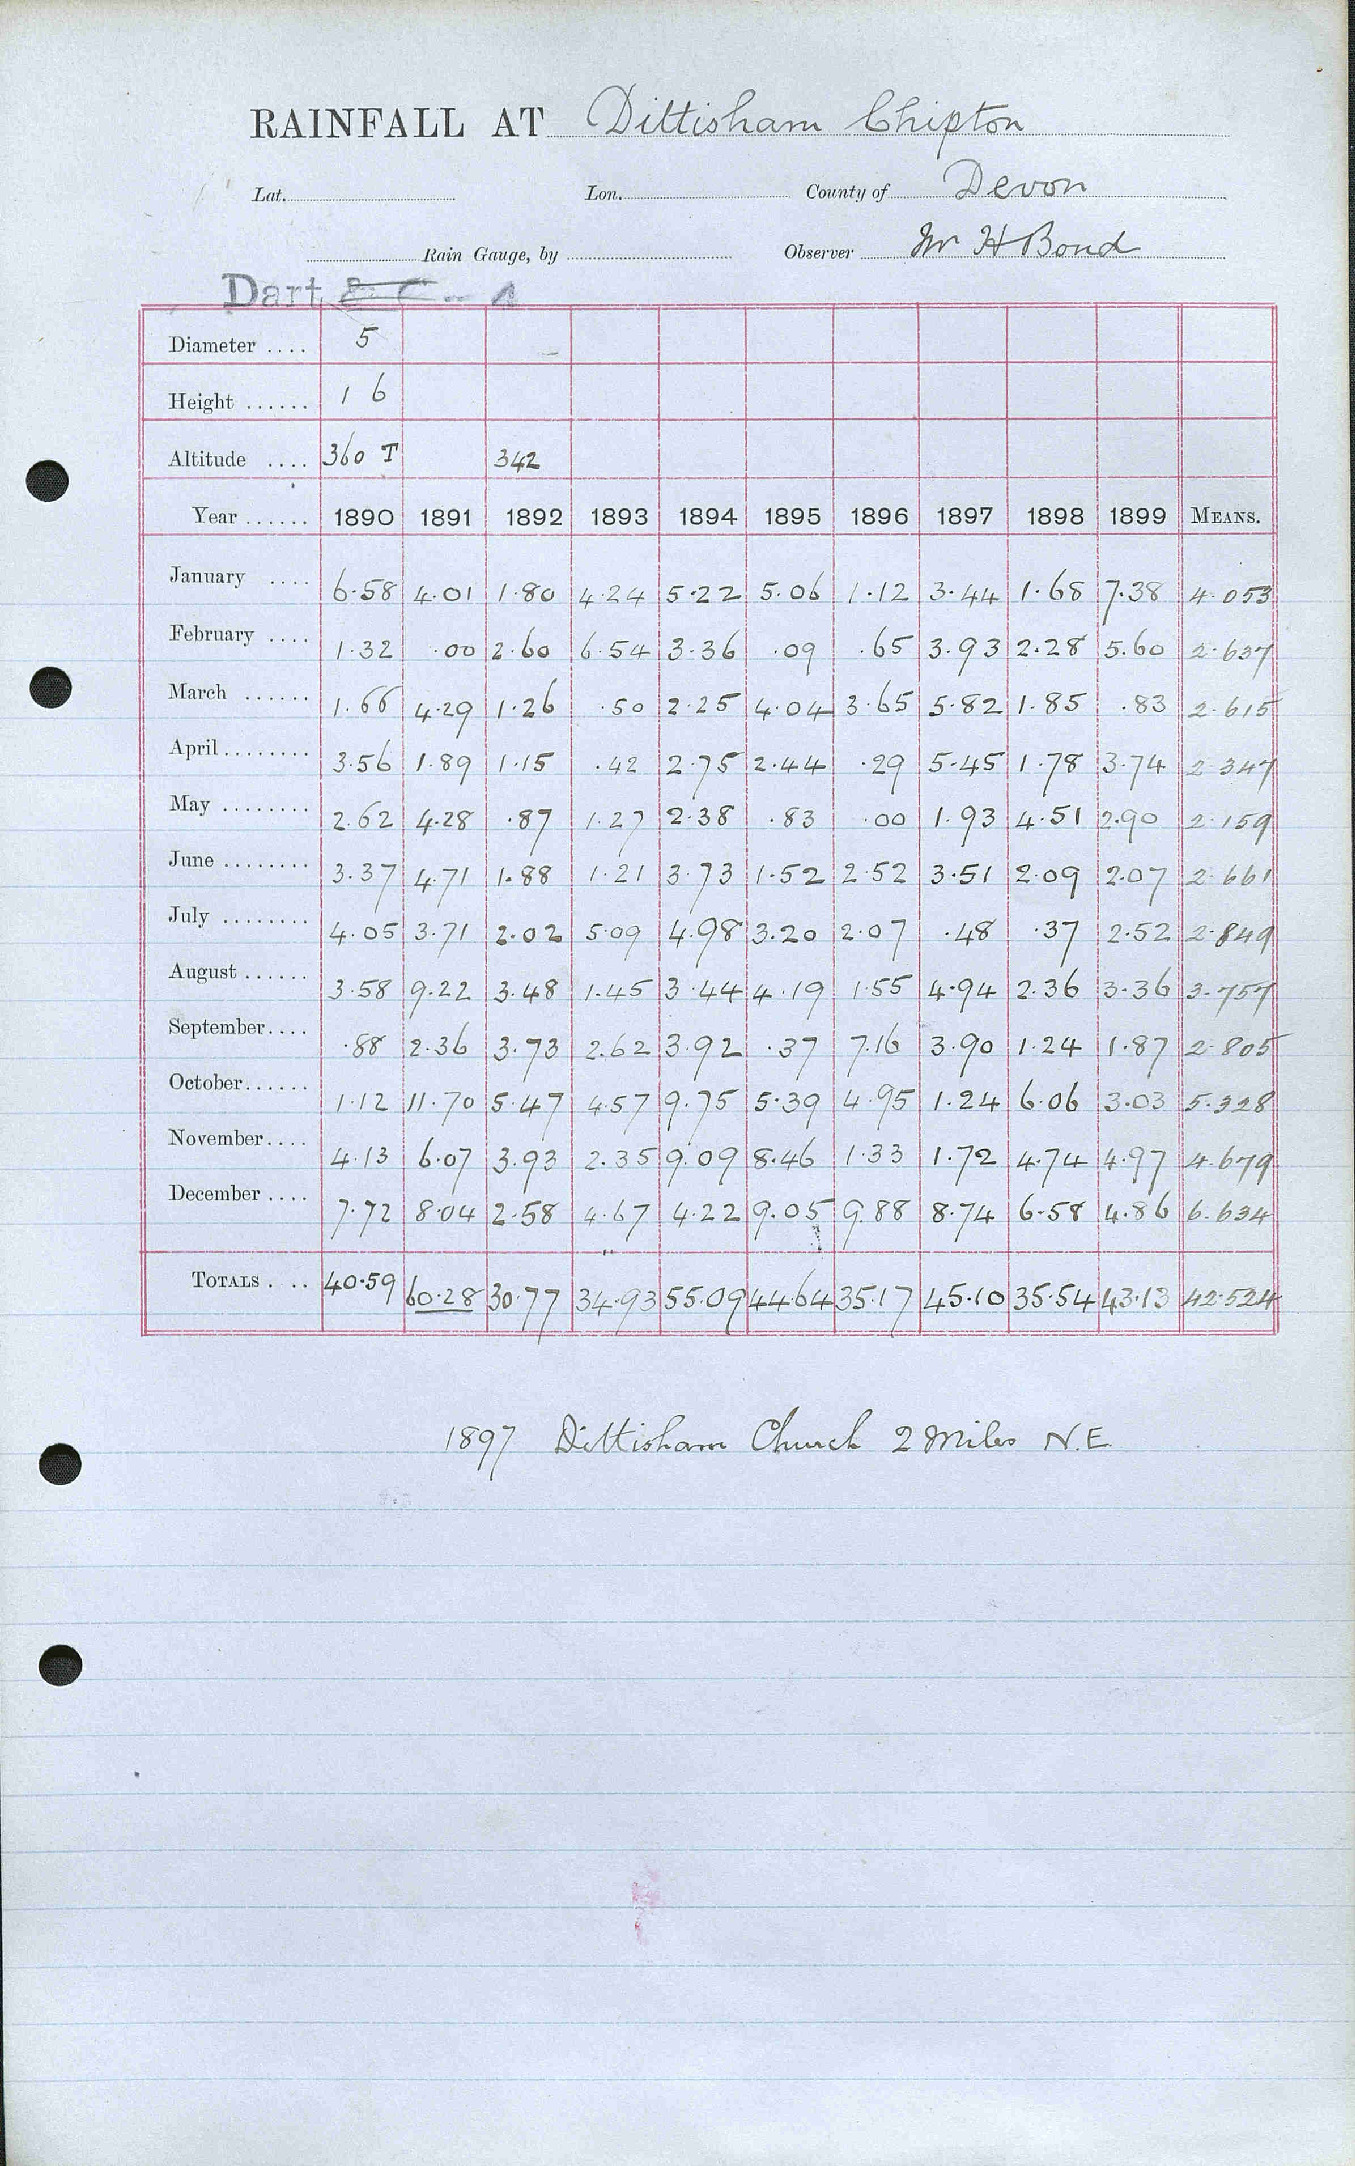 RAINFALL AT Dittisham Chipton
Lat. Lon. County of Devon
Rain Gauge, by Observer Mr H Bond
Dart
Diameter .... 5
Height ...... 1 6
Altitude .... 360 T 342
Year ...... 1890 1891 1892 1893 1894 1895 1896 1897 1898 1899 MEANS.
January .... 6.58 4.01 1.80 4.24 5.22 5.06 1.12 3.44 1.68 7.38 4.053
February .... 1.32 .00 2.60 6.54 3.36 .09 .65 3.93 2.28 5.60 2.637
March ...... 1.66 4.29 1.26 .50 2.25 4.04 3.65 5.82 1.85 .83 2.615
April ........ 3.56 1.89 1.15 .42 2.75 2.44 .29 5.45 1.78 3.74 2.347
May ........ 2.62 4.28 .87 1.27 2.38 .83 .00 1.93 4.51 2.90 2.159
June ........ 3.37 4.71 1.88 1.21 3.73 1.52 2.52 3.51 2.09 2.07 2.661
July ........ 4.05 3.71 2.02 5.09 4.98 3.20 2.07 .48 .37 2.52 2.849
August ...... 3.58 9.22 3.48 1.45 3.44 4.19 1.55 4.94 2.36 3.36 3.757
September.... .88 2.36 3.73 2.62 3.92 .37 7.16 3.90 1.24 1.87 2.805
October...... 1.12 11.70 5.47 4.57 9.75 5.39 4.95 1.24 6.06 3.03 5.328
November.... 4.13 6.07 3.93 2.35 9.09 8.46 1.33 1.72 4.74 4.97 4.679
December .... 7.72 8.04 2.58 4.67 4.22 9.05 9.88 8.74 6.58 4.86 6.634
TOTALS . .. 40.59 60.28 30.77 34.93 55.09 44.64 35.17 45.10 35.54 43.13 42.524
1897 Dittisham Church 2 Miles N.E